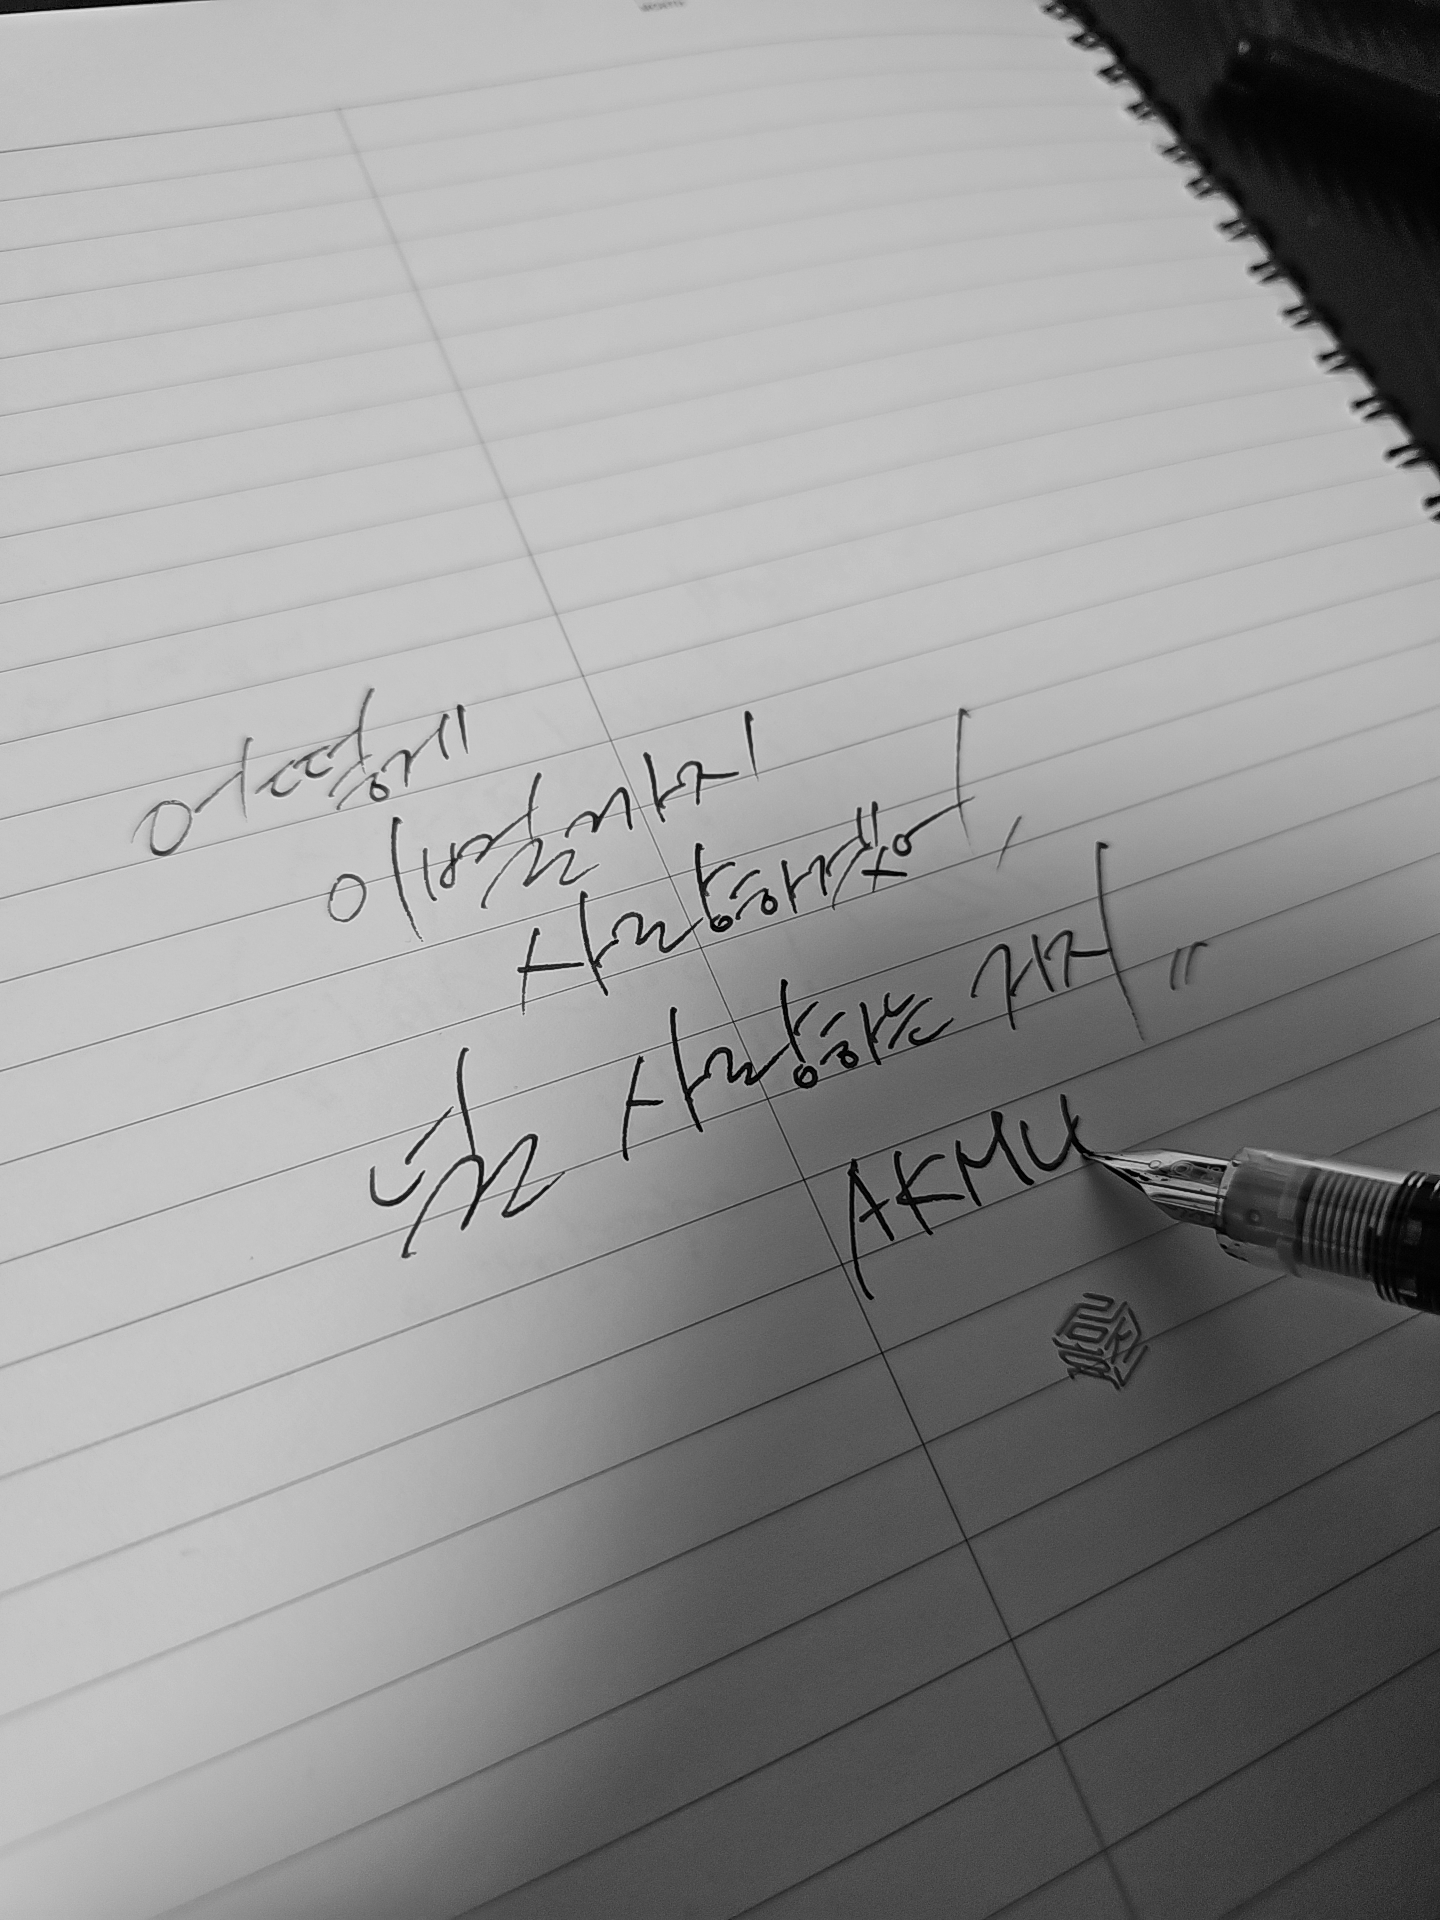 어떻게
이별까지
사랑하겠어,
널 사랑하는 거지"
AKMU